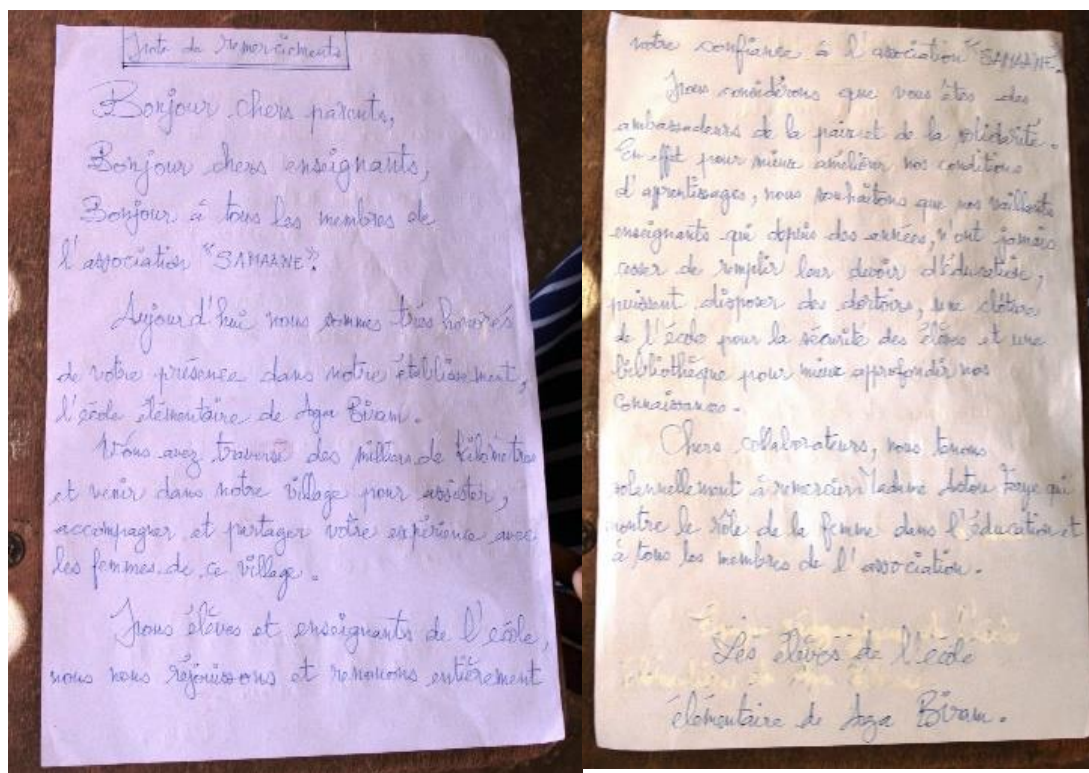 Note de remerciements
Bonjour chers parents,
Bonjour chers enseignants,
Bonjour à tous les membres de
l'association "SAMAANE".
Aujourd'hui nous sommes très honorés
de votre présence dans notre établissement,
l'école élémentaire de Aga Biram.
Vous avez traversé des milliers de kilomètres
et venir dans notre village pour assister,
accompagner et partager votre expérience avec
les femmes de ce village.
Nous élèves et enseignants de l'école,
nous nous réjouissons et renouons entièrement
votre confiance à l'association "SAMAANE".
Nous considérons que vous êtes des
ambassadeurs de la paix et de la solidarité.
En effet pour mieux améliorer nos conditions
d'aprentissages, nous souhaitons que nos vaillants
enseignants qui depuis des années, n'ont jamais
cesser de remplir leur devoir d'éducation,
puissent disposer des dortoirs, une clôture
de l'école pour la sécurité des élèves et une
bibliothèque pour mieux approfondir nos
connaissances.
Chers collaborateurs, nous tenons
solennellement à remercier Madame Astou Faye qui
montre le rôle de la femme dans l'éducation et
à tous les membres de l'association.
Les élèves de l'école
élémentaire de Aga Biram.